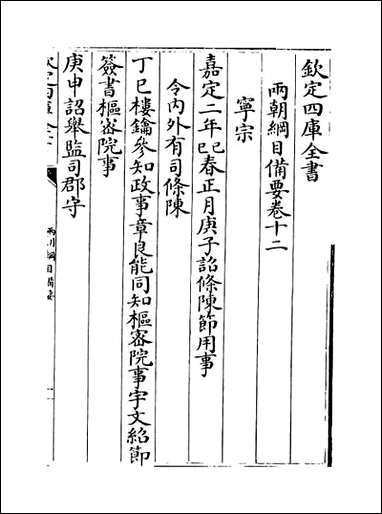 欽定四庫全書
兩朝綱目備要卷十二
寧宗
嘉定二年己巳春正月庚子詔條陳節用事
令內外有司條陳
丁巳樓鑰參知政事章良能同知樞密院事宇文紹節
簽書樞密院事
庚申詔舉監司郡守
欽定四庫全書
兩朝綱目備要